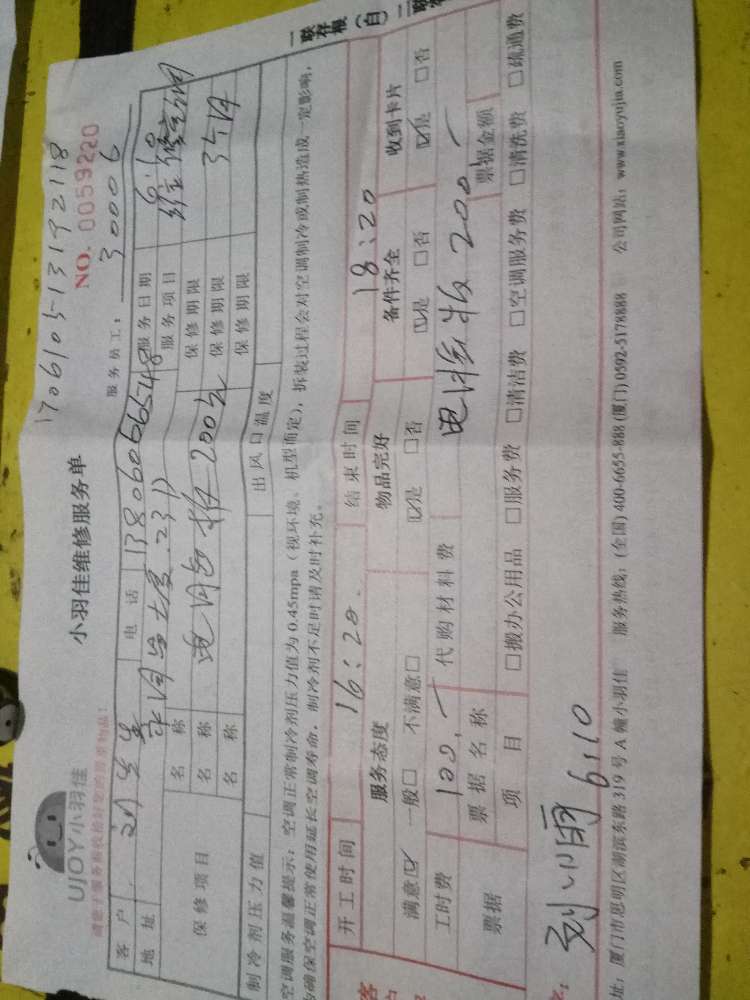 1706105-13192118
NO. 0059220
UJOY小羽佳
小羽佳维修服务单
服务员工： 30006
客户 电话 13806066548 服务日期 6.10
地址 2311 服务项目 维修空调
名称 保修期限
保修项目 名称 电脑板 200元 保修期限 3个月
名称 保修期限
制冷剂压力值 出风口温度
空调服务温馨提示：空调正常制冷剂压力值为0.45mpa（视环境、机型而定），拆装过程会对空调制冷或制热造成一定影响，
为确保空调正常使用延长空调寿命，制冷剂不足时请及时补充。
开工时间 16：20 结束时间 18：20
服务态度 物品完好 备件齐全 收到卡片
满意☑ 一般□ 不满意□ ☑是 □否 ☑是 □否 ☑是 □否
工时费 100.- 代购材料费 电脑板 200.-
票据 票据名称 票据金额
项目 □搬办公用品 □服务费 □清洁费 □空调服务费 □清洗费 □疏通费
6.10
址：厦门市思明区湖滨东路319号A幢小羽佳 服务热线：(全国) 400-6655-888 (厦门) 0592-5178888 公司网站：www.xiaoyujia.com
一联存根（白）
二联